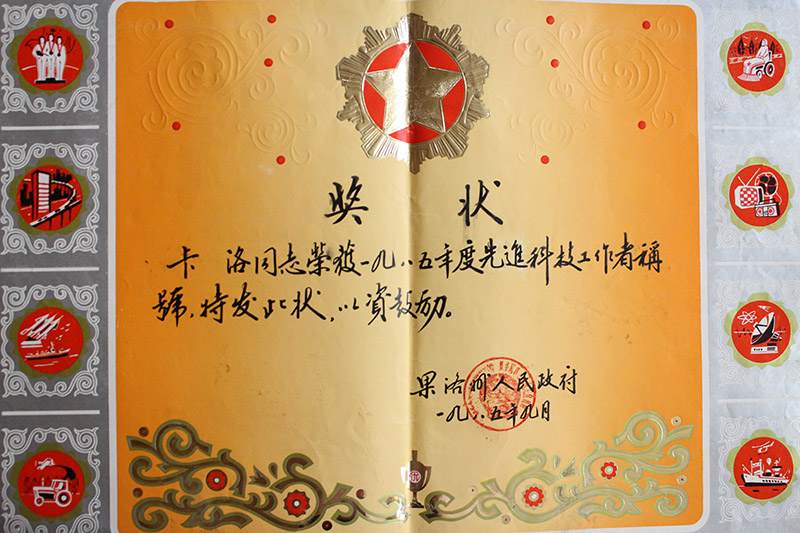 奖状
卡 洛同志榮獲一九八五年度先進科技工作者稱
號,特发此状,以資鼓励。
果洛州人民政府
一九八五年九月